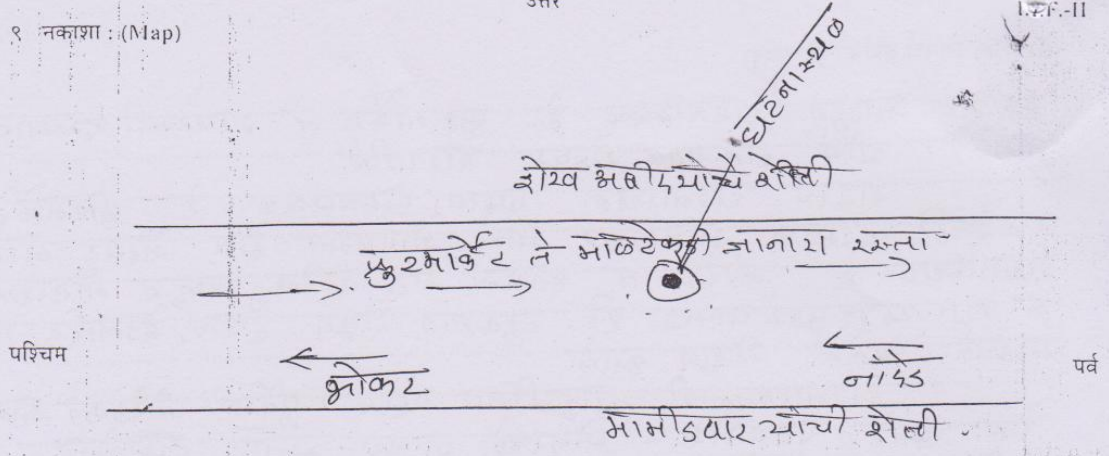 उत्तर
I.I.F.-II
९ नकाशा : (Map)
घटनास्थळ
शेख अबीद यांचे शेती
मार्केट ते माळटेकडी जाणारा रस्ता
पश्चिम
पर्व
भोकर
नांदेड
मामीडवार यांची शेती.